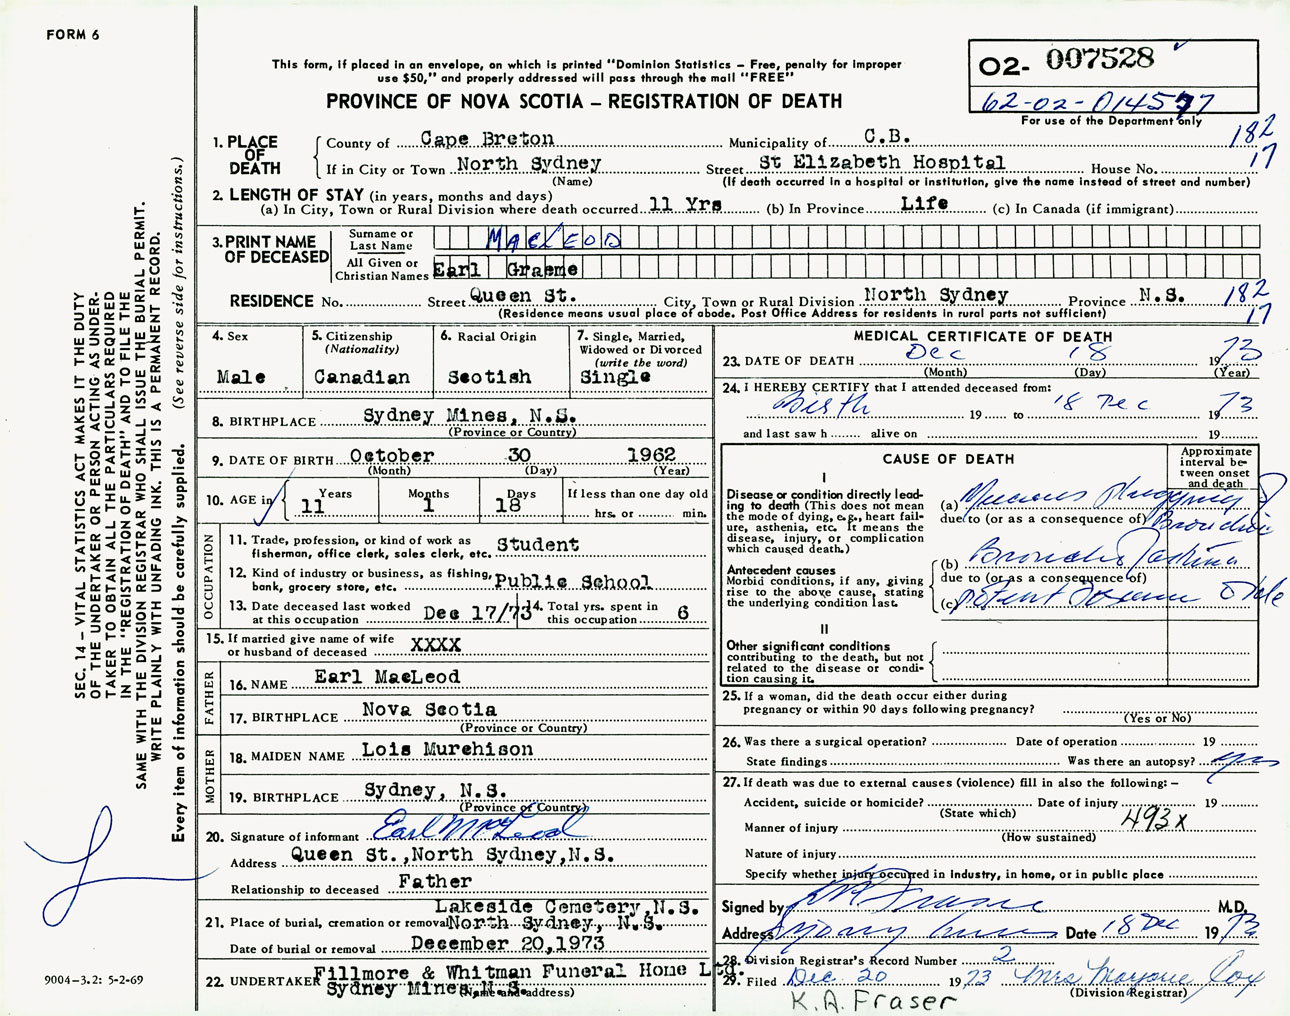 FORM 6
This form, if placed in an envelope, on which is printed "Dominion Statistics – Free, penalty for improper
use $50," and properly addressed will pass through the mail "FREE"
PROVINCE OF NOVA SCOTIA – REGISTRATION OF DEATH
02- 007528
62-02-014577
For use of the Department only
1. PLACE OF DEATH
County of Cape Breton Municipality of C.B. 182
If in City or Town North Sydney Street St Elizabeth Hospital House No. 17
(Name) (If death occurred in a hospital or institution, give the name instead of street and number)
2. LENGTH OF STAY (in years, months and days)
(a) In City, Town or Rural Division where death occurred 11 Yrs (b) In Province Life (c) In Canada (if immigrant)
3. PRINT NAME OF DECEASED
Surname or Last Name MacLEOD
All Given or Christian Names Earl Graeme
RESIDENCE No. Street Queen St. City, Town or Rural Division North Sydney Province N.S. 182
(Residence means usual place of abode. Post Office Address for residents in rural parts not sufficient) 17
4. Sex
Male
5. Citizenship (Nationality)
Canadian
6. Racial Origin
Scotish
7. Single, Married, Widowed or Divorced (write the word)
Single
8. BIRTHPLACE Sydney Mines, N.S.
(Province or Country)
9. DATE OF BIRTH October 30 1962
(Month) (Day) (Year)
10. AGE in Years Months Days If less than one day old
11 1 18 hrs. or min.
OCCUPATION
11. Trade, profession, or kind of work as
fisherman, office clerk, sales clerk, etc. Student
12. Kind of industry or business, as fishing,
bank, grocery store, etc. Public School
13. Date deceased last worked
at this occupation Dec 17/73
14. Total yrs. spent in
this occupation 6
15. If married give name of wife
or husband of deceased XXXX
FATHER
16. NAME Earl MacLeod
17. BIRTHPLACE Nova Scotia
(Province or Country)
MOTHER
18. MAIDEN NAME Lois Murchison
19. BIRTHPLACE Sydney, N.S.
(Province or Country)
20. Signature of informant Earl McLeod
Address Queen St.,North Sydney,N.S.
Relationship to deceased Father
Lakeside Cemetery,N.S.
21. Place of burial, cremation or removal North Sydney, N.S.
Date of burial or removal December 20,1973
22. UNDERTAKER Fillmore & Whitman Funeral Home Ltd.
Sydney Mines,N.S.
(Name and address)
MEDICAL CERTIFICATE OF DEATH
23. DATE OF DEATH Dec 18 1973
(Month) (Day) (Year)
24. I HEREBY CERTIFY that I attended deceased from:
Birth 19 to 18 Dec 1973
and last saw h alive on 19
CAUSE OF DEATH
Approximate interval between onset and death
I
Disease or condition directly leading
to death (This does not mean
the mode of dying, e.g., heart failure,
asthenia, etc. It means the
disease, injury, or complication
which caused death.)
(a) Mucous Plugging
due to (or as a consequence of)
Antecedent causes
Morbid conditions, if any, giving
rise to the above cause, stating
the underlying condition last.
(b)
due to (or as a consequence of)
(c)
II
Other significant conditions
contributing to the death, but not
related to the disease or condition
causing it.
25. If a woman, did the death occur either during
pregnancy or within 90 days following pregnancy?
(Yes or No)
26. Was there a surgical operation? Date of operation 19
State findings Was there an autopsy? yes
27. If death was due to external causes (violence) fill in also the following: –
Accident, suicide or homicide? Date of injury 19
(State which)
Manner of injury 493X
(How sustained)
Nature of injury
Specify whether injury occurred in industry, in home, or in public place
Signed by Fraser M.D.
Address Sydney Mines Date 18 Dec 1973
28. Division Registrar's Record Number 2
29. Filed Dec. 20 1973 Mrs Marjorie Cox
(Division Registrar)
K.A. Fraser
SEC. 14 – VITAL STATISTICS ACT MAKES IT THE DUTY
OF THE UNDERTAKER OR PERSON ACTING AS UNDERTAKER
TO OBTAIN ALL THE PARTICULARS REQUIRED
IN THE "REGISTRATION OF DEATH" AND TO FILE THE
SAME WITH THE DIVISION REGISTRAR WHO SHALL ISSUE THE BURIAL PERMIT.
WRITE PLAINLY WITH UNFADING INK. THIS IS A PERMANENT RECORD.
Every item of information should be carefully supplied. (See reverse side for instructions.)
9004–3.2: 5-2-69